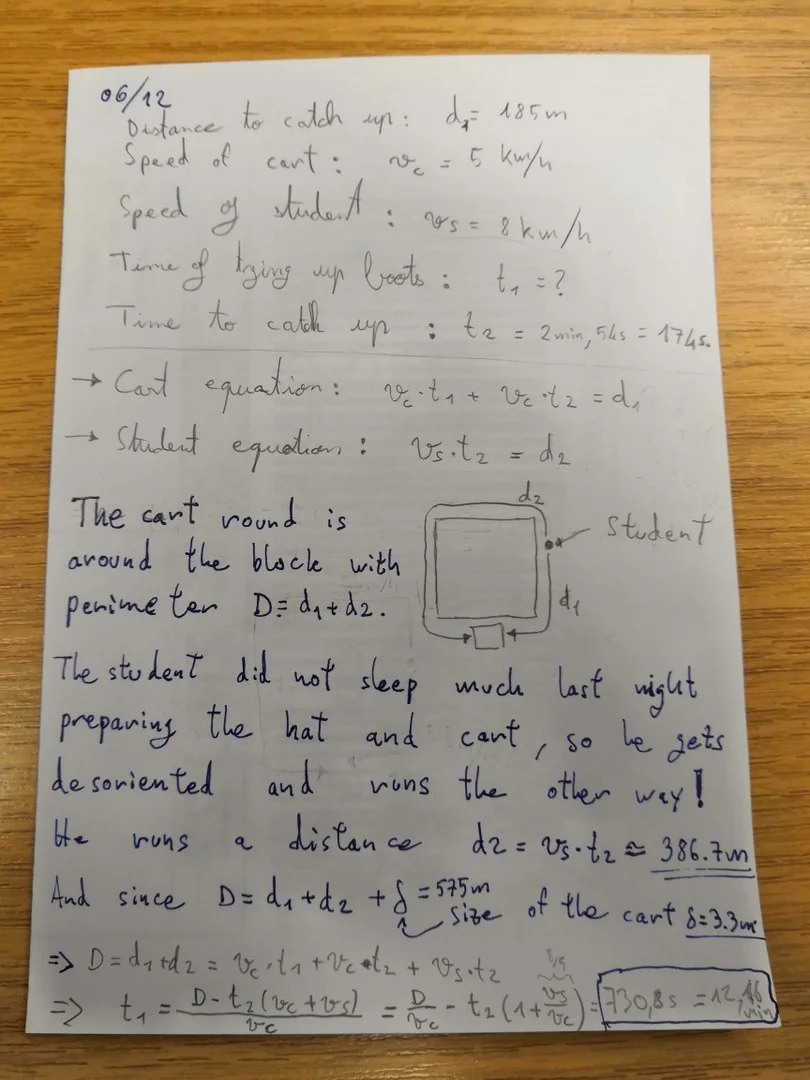 06/12
Distance to catch up: d₁= 185m
Speed of cart: v_c = 5 km/h
Speed of student: v_s = 8 km/h
Time of tying up boots: t₁ = ?
Time to catch up : t₂ = 2min, 54s = 174s.
→ Cart equation: v_c·t₁ + v_c·t₂ = d₁
→ Student equation: v_s·t₂ = d₂
The cart round is
around the block with
perimeter D = d₁+d₂.
d₂
Student
d₁
The student did not sleep much last night
preparing the hat and cart, so he gets
desoriented and runs the other way!
He runs a distance d2 = v_s·t₂ ≈ 386.7m
And since D = d₁+d₂ + δ = 575m
size of the cart δ=3.3m
=> D = d₁+d₂ = v_c·t₁ + v_c·t₂ + v_s·t₂
=> t₁ = (D - t₂(v_c+v_s))/v_c = D/v_c - t₂(1+v_s/v_c) = 730,8s = 12,16 min